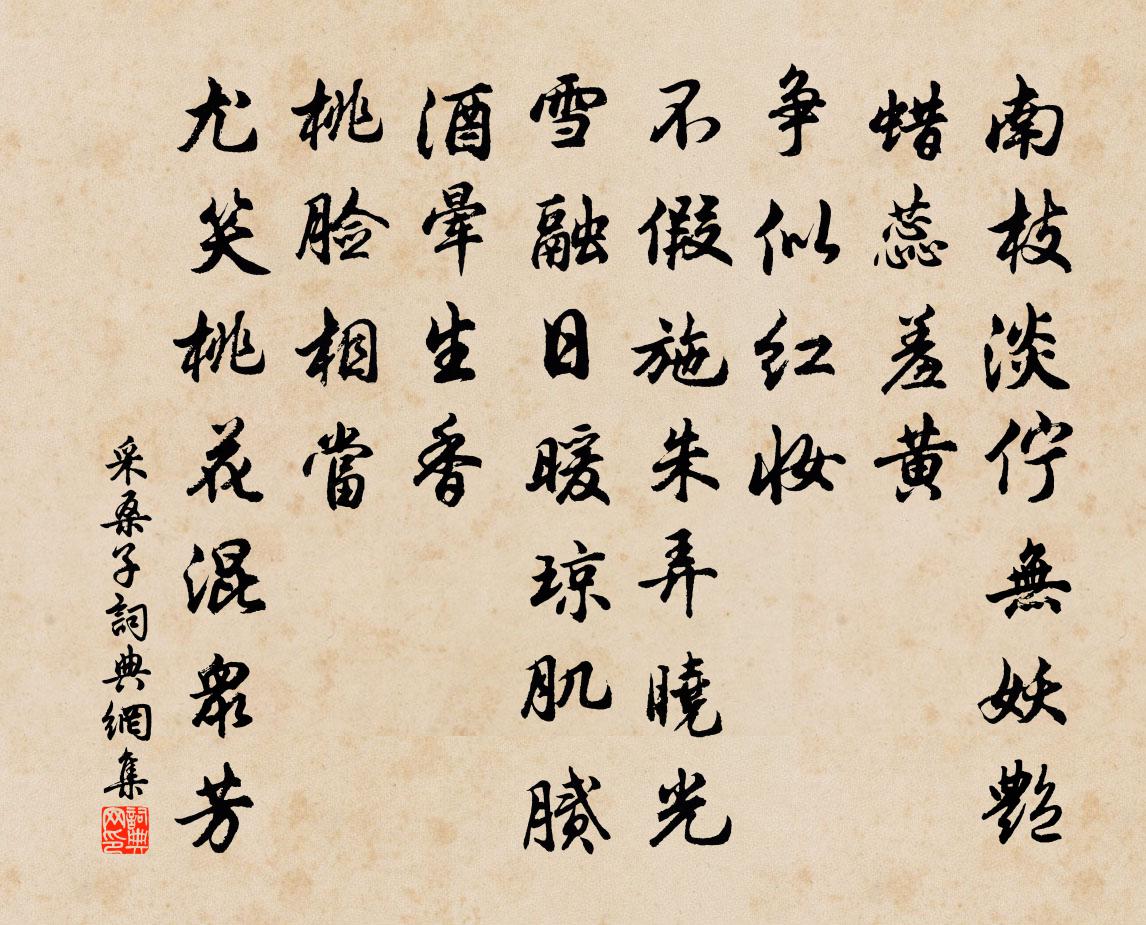 南枝淡佇無妖艷
蜡蕊羞黄
争似红妆
不假施朱弄曉光
雪融日暖琼肌腻
酒暈生香
桃脸相當
尤笑桃花混眾芳
采桑子詞典網集
詞典网印